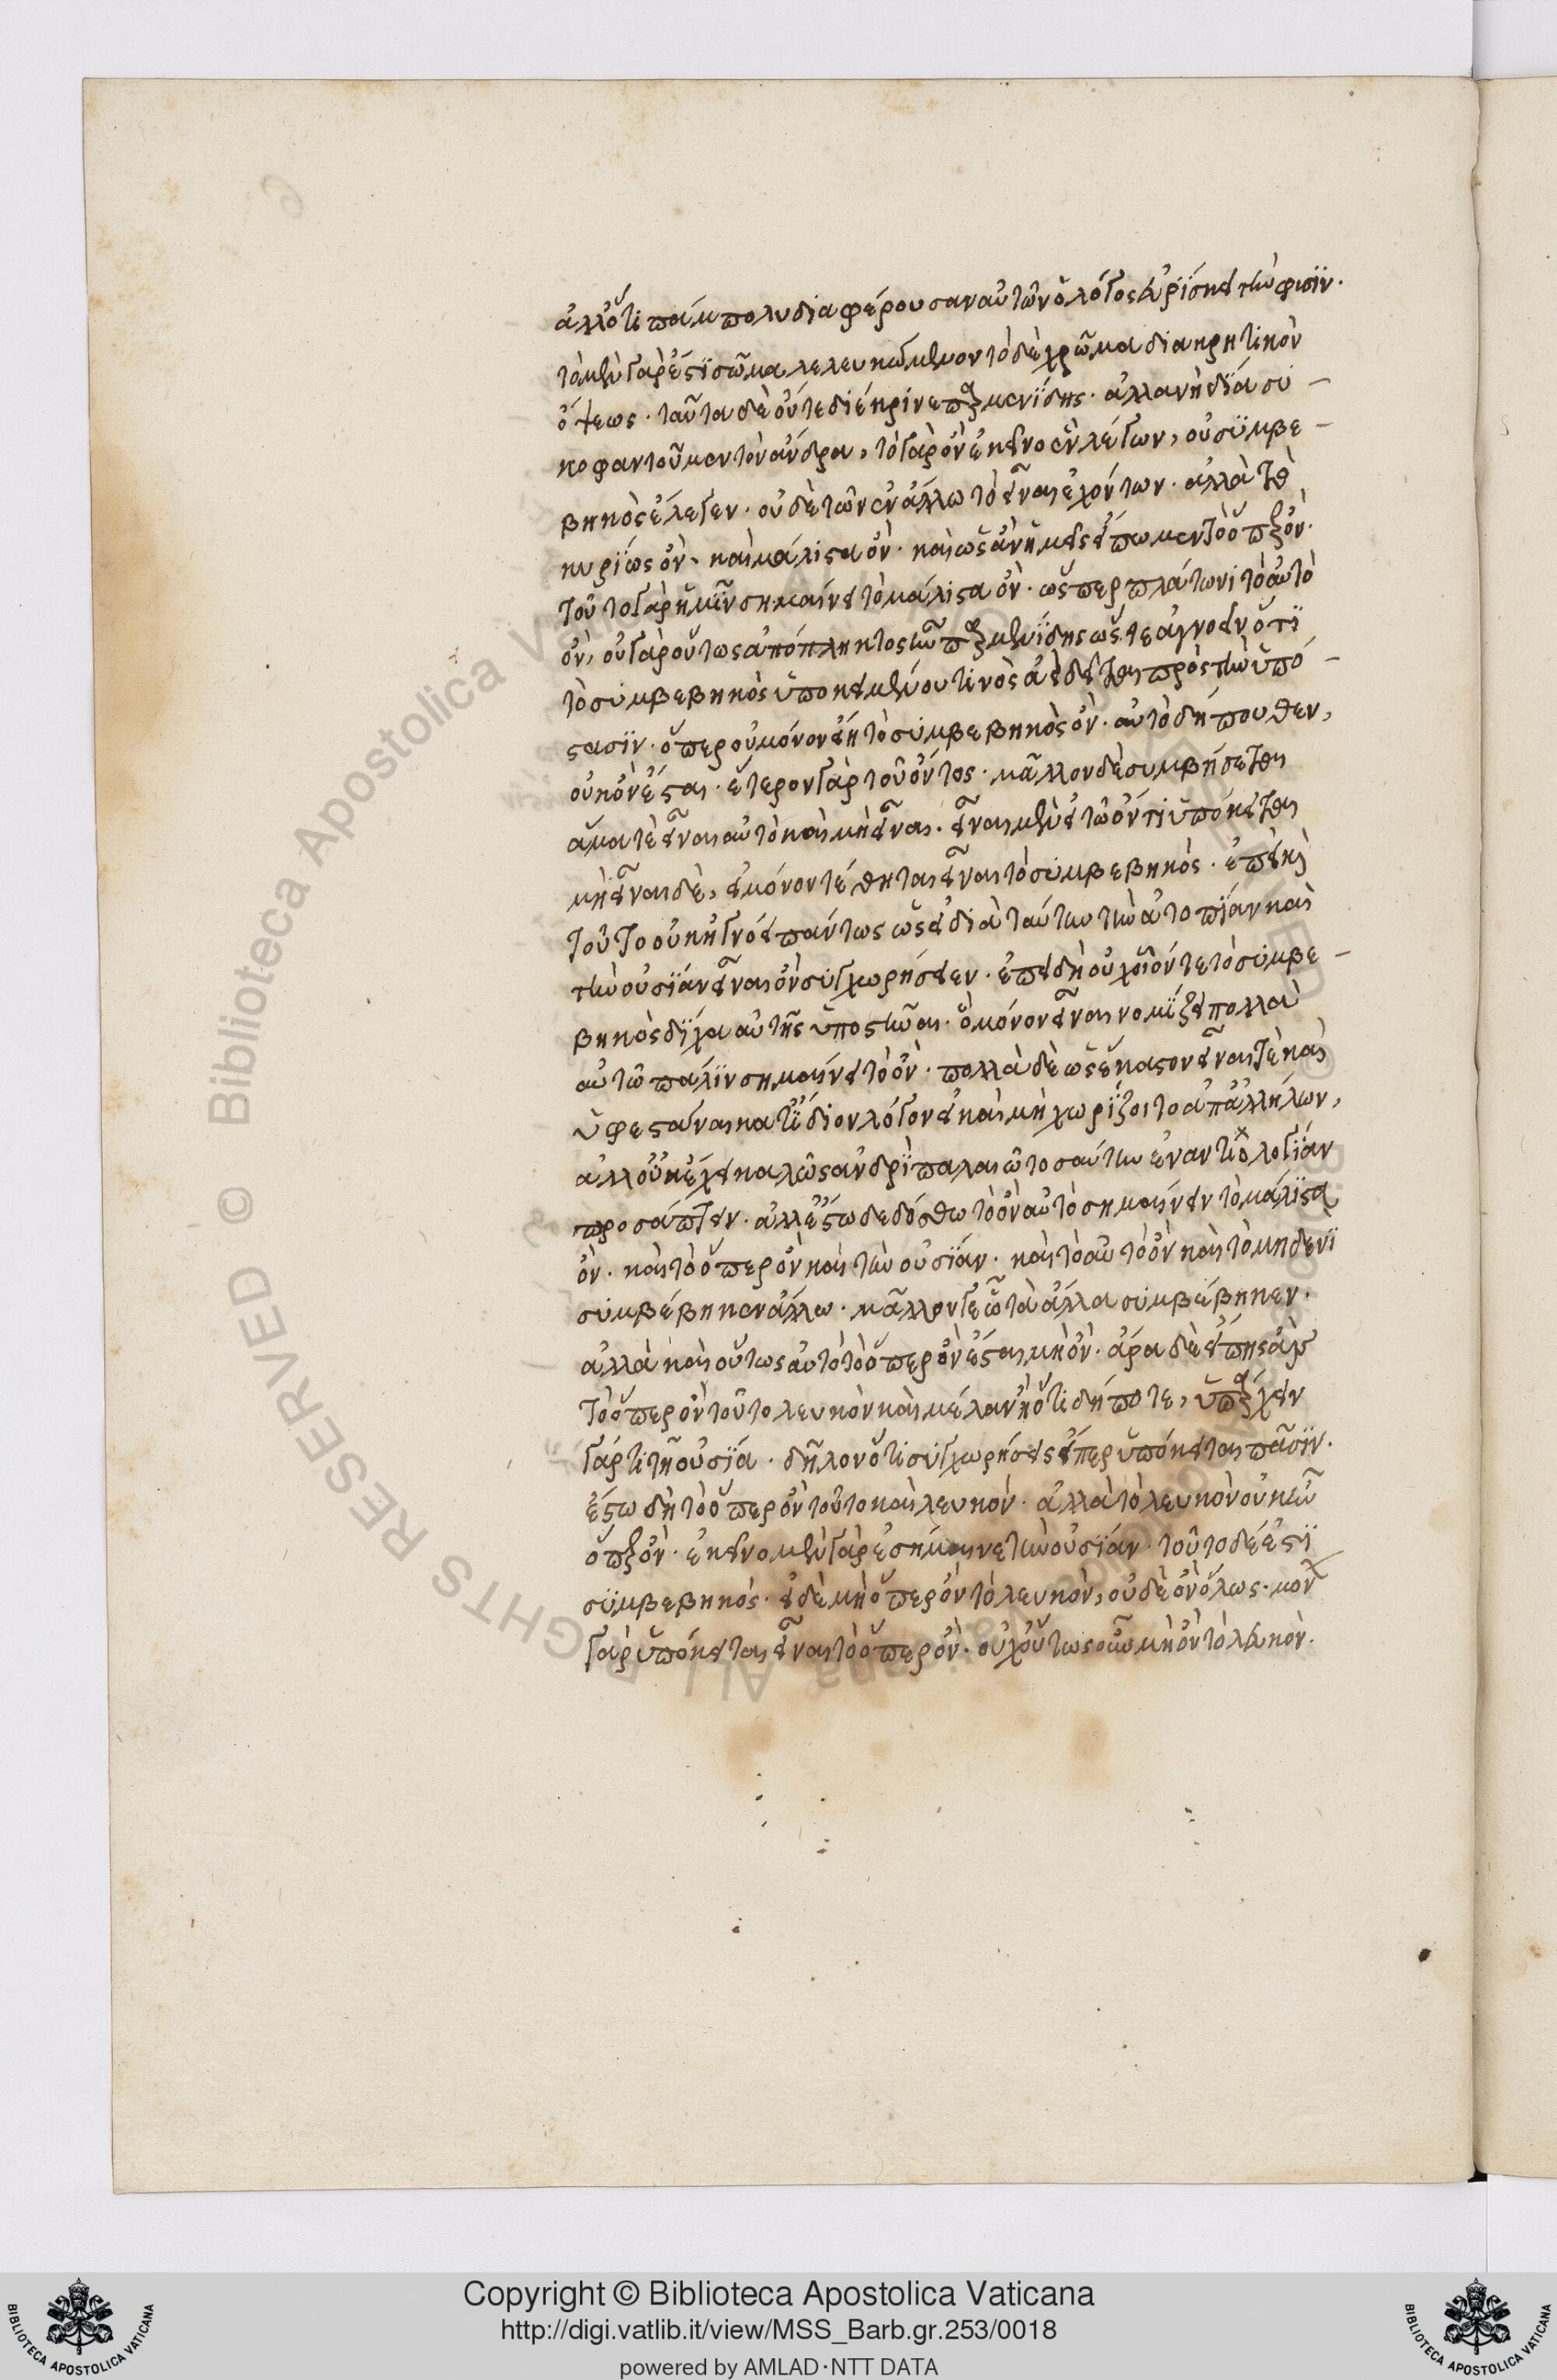 ἀλλ' ὅτι πάμπολυ διαφέρουσαν αὐτῶν ὁ λόγος εὑρίσκει τὴν φύσιν.
τὸ μὲν γάρ ἐστι σῶμα λελευκωμένον τὸ δὲ χρῶμα διακριτικὸν
ὄψεως. ταῦτα δὲ οὔτε διέκρινε παρμενίδης. ἀλλὰ νὴ δία συ-
κοφαντοῦμεν τὸν ἄνδρα, τὸ γὰρ ὂν ἐκεῖνος ἓν λέγων, οὐ συμβε-
βηκὸς ἔλεγεν. οὐδὲ τῶν ἐν ἄλλω τὸ εἶναι ἐχόντων. ἀλλὰ τὸ
κυρίως ὄν. καὶ μάλιστα ὄν. καὶ ὡς ἂν ἡμεῖς εἴπωμεν τὸ ὅπερ ὄν.
τοῦτο γὰρ ἡμῖν σημαίνει τὸ μάλιστα ὄν. ὥσπερ πλάτωνι τὸ αὐτὸ
ὄν, οὐ γὰρ οὕτως ἀπόπληκτος ἦν παρμενίδης ὥστε ἀγνοεῖν ὅτι
τὸ συμβεβηκὸς ὑποκειμένου τινὸς ἀεὶ δεῖται πρὸς τὴν ὑπό-
στασιν. ὅπερ οὐ μόνον εἴη τὸ συμβεβηκὸς ὄν. αὐτὸ δήπουθεν,
οὐκ ὂν ἔσται. ἕτερον γὰρ τοῦ ὄντος. μᾶλλον δὲ συμβήσεται
ἅμα τὲ εἶναι αὐτὸ καὶ μὴ εἶναι. εἶναι μὲν εἰ τῷ ὄντι ὑπόκειται
μὴ εἶναι δὲ, εἰ μόνον τέθηται εἶναι τὸ συμβεβηκός. ἐπεὶ καὶ
τοῦτο οὐκ ἠγνόει πάντως ὡς εἰ διὰ ταύτην τὴν ἀτοπίαν καὶ
τὴν οὐσίαν εἶναι ὂν συγχωρήσειεν. ἐπειδὴ οὐχ οἷόν τε τὸ συμβε-
βηκὸς δίχα αὐτῆς ὑποστῆναι. ὃ μόνον εἶναι νομίζει πολλὰ
αὐτῶ πάλιν σημαίνει τὸ ὄν. πολλὰ δὲ ὡς ἕκαστον εἶναι τὲ καὶ
ὑφεστάναι κατ' ἴδιον λόγον εἰ καὶ μὴ χωρίζοιτο ἀπ' ἀλλήλων,
ἀλλ' οὐκ ἔχει καλῶς ἀνδρὶ παλαιῶ τοσαύτην ἐναντιολογίαν
προσάπτειν. ἀλλ' ἔστω δεδόσθω τὸ ὂν αὐτὸ σημαίνειν τὸ μάλιστα
ὄν. καὶ τὸ ὅπερ ὂν καὶ τὴν οὐσίαν. καὶ τὸ αὐτὸ ὂν καὶ τὸ μηδενὶ
συμβέβηκεν ἄλλω. μᾶλλον γε ὧ τὰ ἄλλα συμβέβηκεν.
ἀλλὰ καὶ οὕτως αὐτὸ τὸ ὅπερ ὂν ἔσται μὴ ὄν. ἆρα δὲ εἴπης ἂν
τὸ ὅπερ ὂν τοῦτο λευκὸν καὶ μέλαν ἢ ὅτι δήποτε, ὑπάρχειν
γάρ τι τῇ οὐσία. δῆλον ὅτι συγχωρήσεις εἴπερ ὑπόκειται πᾶσιν.
ἔστω δὴ τὸ ὅπερ ὂν τοῦτο καὶ λευκόν. ἀλλὰ τὸ λευκὸν οὐκ ἦν
ὅπερ ὄν. ἐκεῖνο μὲν γὰρ ἐσήμαινε τὴν οὐσίαν. τοῦτο δέ ἐστι
συμβεβηκός. εἰ δὲ μὴ ὅπερ ὂν τὸ λευκὸν, οὐδὲ ὂν ὅλως. μόνον
γὰρ ὑπόκειται εἶναι τὸ ὅπερ ὄν. οὐχ οὕτως οὖν μὴ ὂν τὸ λευκόν.
Copyright © Biblioteca Apostolica Vaticana
http://digi.vatlib.it/view/MSS_Barb.gr.253/0018
powered by AMLAD·NTT DATA
BIBLIOTECA APOSTOLICA VATICANA
BIBLIOTECA APOSTOLICA VATICANA